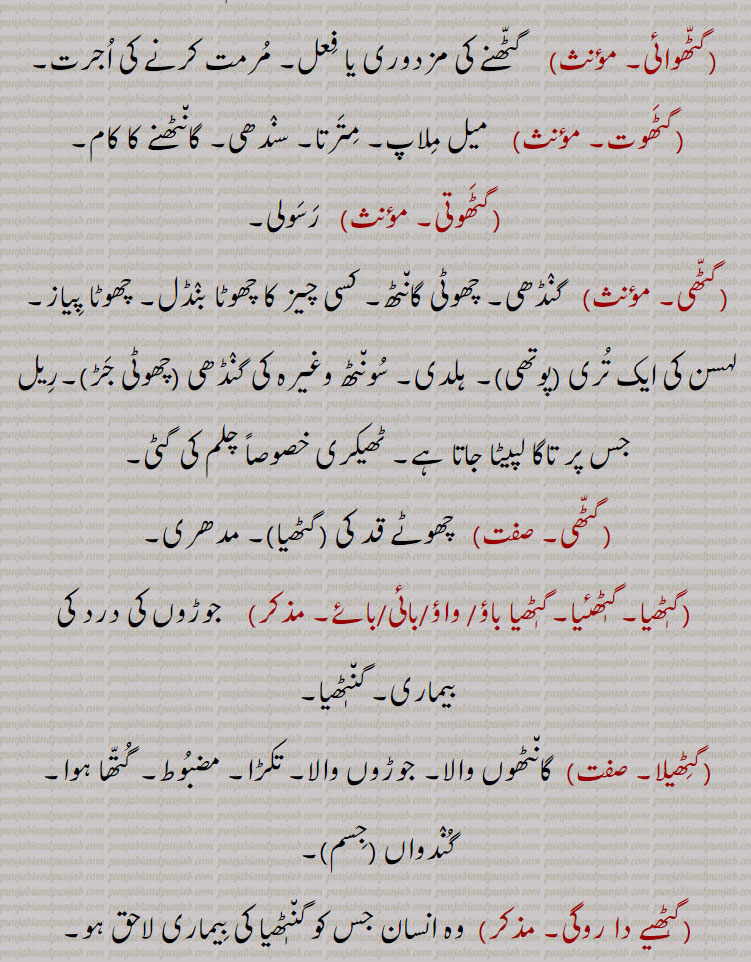 (گٹّھوائی۔ مؤنث) گٹّھنے کی مزدوری یا فِعل۔ مُرمت کرنے کی اُجرت۔
(گٹھَوت۔ مؤنث) میل مِلاپ۔ مِتَرتا۔ سنْدھی۔ گانْٹھنے کا کام۔
(گٹھَوتی۔ مؤنث) رَسَولی۔
(گٹّھی۔ مؤنث) گنْڈھی۔ چھوٹی گانْٹھ۔ کسی چیز کا چھوٹا بنْڈل۔ چھوٹا پِیاز۔
لہسن کی ایک تُری (پوتھی)۔ ہلدی۔ سُونْٹھ وغیرہ کی گنْڈھی (چھوٹی جَڑ)۔ رِیل
جس پر تاگا لپیٹا جاتا ہے۔ ٹھیکری خصوصاً چلم کی گٹی۔
(گٹّھی۔ صفت) چھوٹے قد کی (گٹھیا)۔ مدھری۔
(گٹھیا۔ گٹھئیا۔ گٹھیا باؤ/ واؤ/بائی/بائے۔ مذکر) جوڑوں کی درد کی
بیماری۔ گنْٹھیا۔
(گٹھِیلا۔ صفت) گانْٹھوں والا۔ جوڑوں والا۔ تکڑا۔ مضبُوط۔ گُتّھا ہوا۔
گُنْدواں (جِسم)۔
(گٹھیے دا روگی۔ مذکر) وہ انسان جس کو گنْٹھیا کی بِیماری لاحق ہو۔